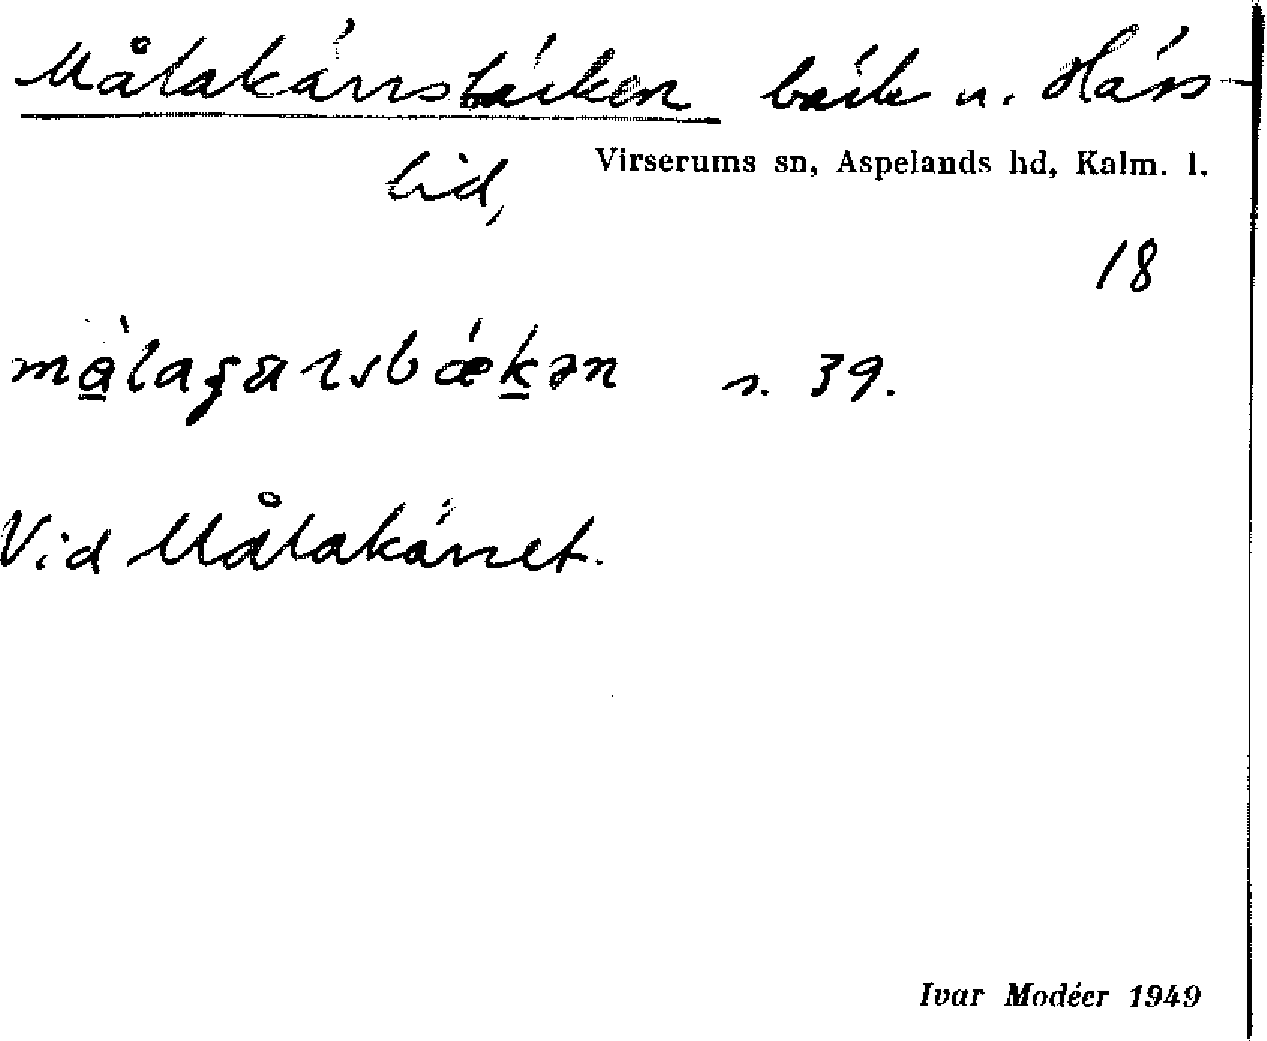 Målakärrsbäcken bäck u. Häss-
lid,
Virserums sn, Aspelands hd, Kalm. l.
18
målagarsbækən s. 39.
Vid Målakärret.
Ivar Modéer 1949